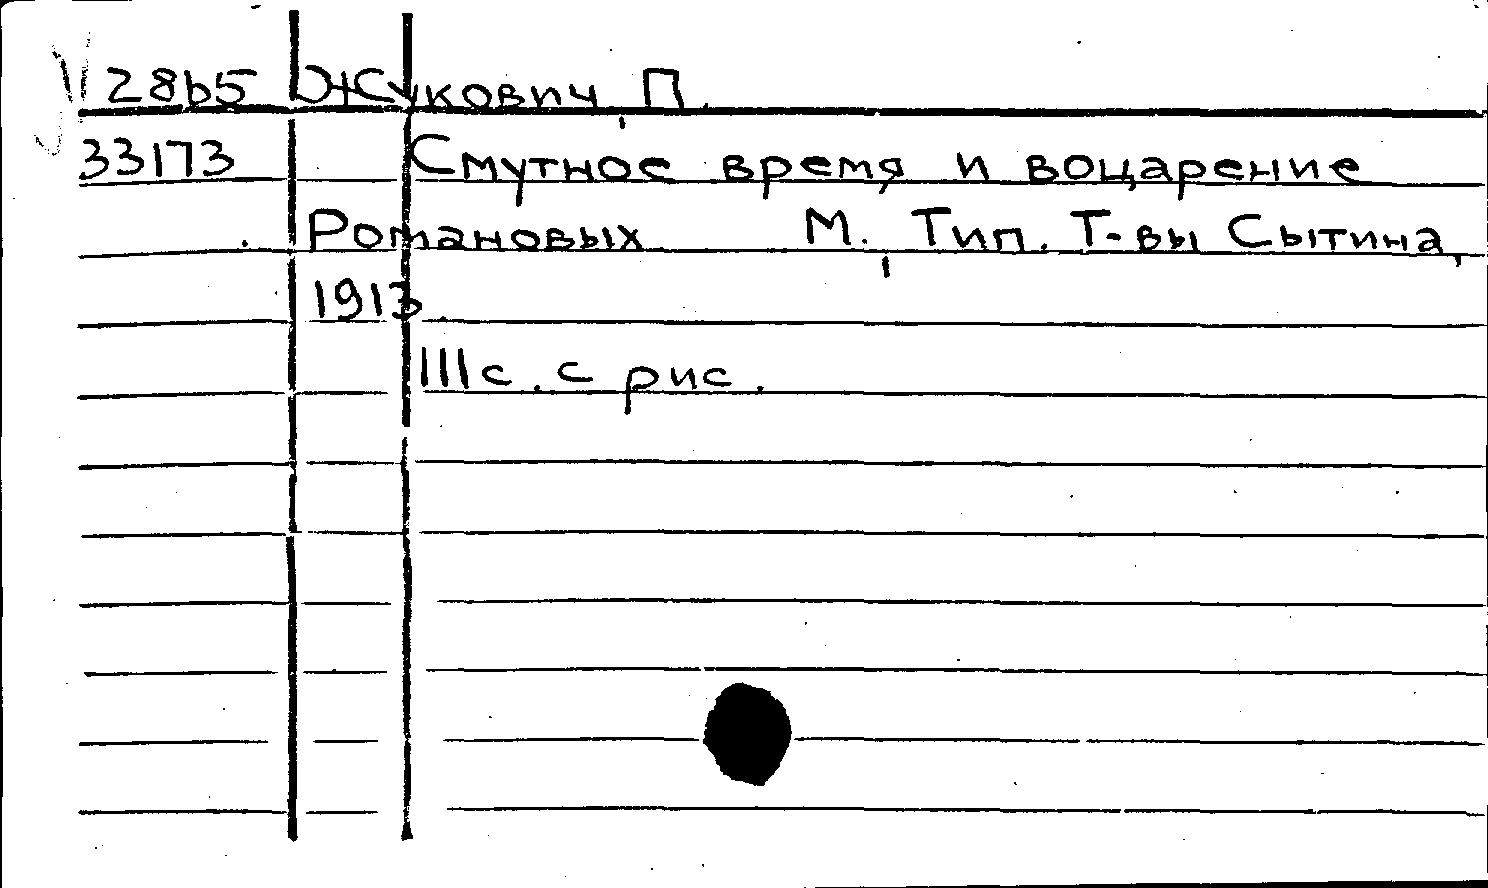 28b5 Жукович, П.
33173 Смутное время и воцарение
Романовых М., Тип. Т-вы Сытина,
1913.
111с. с рис.